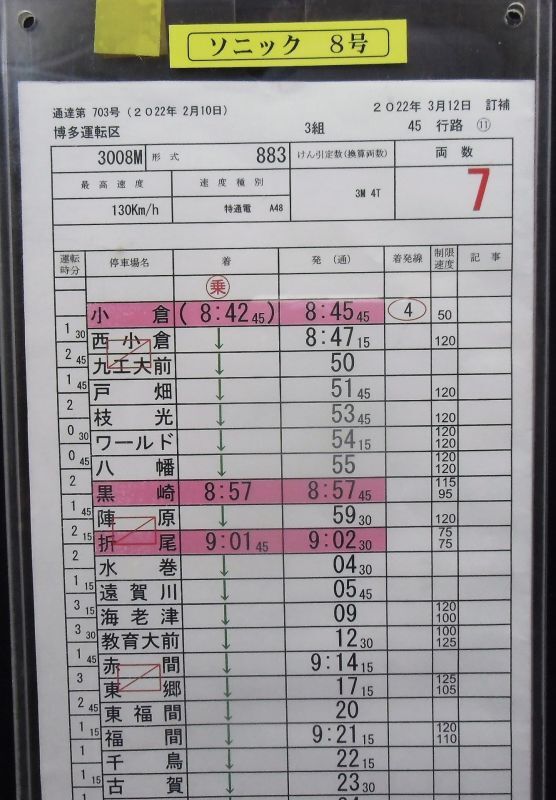 ソニック 8号
通達第 703号(2022年 2月10日)
2022年 3月12日 訂補
博多運転区 3組 45 行路 ⑪
3008M 形式 883 けん引定数(換算両数) 両数
最高速度 速度種別 3M 4T 7
130Km/h 特通電 A48
運転時分 停車場名 着 発(通) 着発線 制限速度 記事
乗
小倉 (8:42 45) 8:45 45 4 50
1 30
西小倉 ↓ 8:47 15 120
2 45
九工大前 ↓ 50
1 45
戸畑 ↓ 51 45 120
2
枝光 ↓ 53 45 120
0 30
ワールド ↓ 54 15 120 120
0 45
八幡 ↓ 55 120 120
2
黒崎 8:57 8:57 45 115 95
1 45
陣原 ↓ 59 30 120
2 15
折尾 9:01 45 9:02 30 75 75
2
水巻 ↓ 04 30
1 15
遠賀川 ↓ 05 45
3 15
海老津 ↓ 09 120 100
3 30
教育大前 ↓ 12 30 100 125
1 45
赤間 ↓ 9:14 15
3
東郷 ↓ 17 15 125 105
2 45
東福間 ↓ 20
1 15
福間 ↓ 9:21 15 120 110
1
千鳥 ↓ 22 15
1 15
古賀 ↓ 23 30